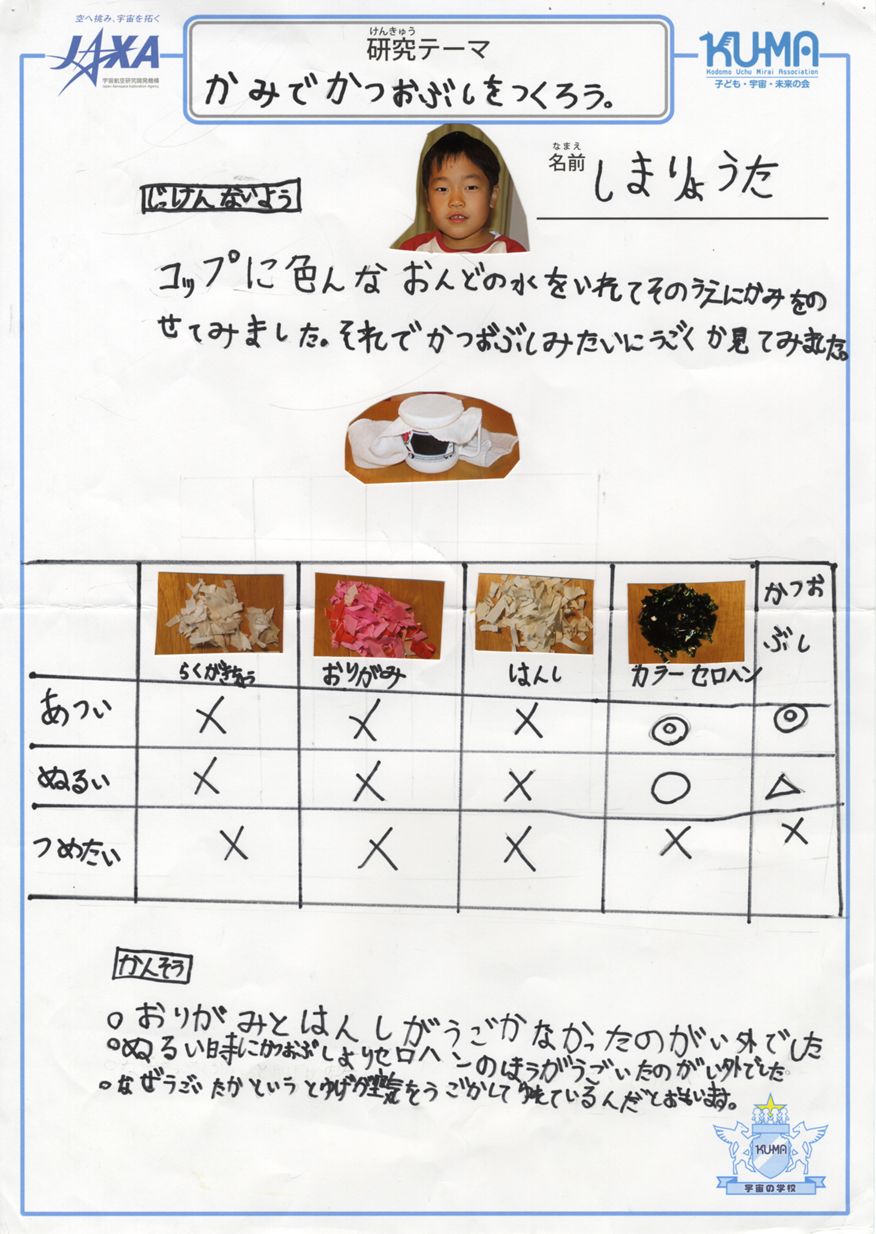 空へ挑み、宇宙を拓く
JAXA
宇宙航空研究開発機構
Japan Aerospace Exploration Agency
けんきゅう
研究テーマ
かみでかつおぶしをつくろう。
KU-MA
Kodomo Uchu Mirai Association
子ども・宇宙・未来の会
なまえ
名前 しまりょうた
じっけんないよう
コップに色んなおんどの水をいれてそのうえにかみをの
せてみました。それでかつおぶしみたいにうごくか見てみました。
らくがきちょう おりがみ はんし カラーセロハン かつおぶし
あつい × × × ◎ ◎
ぬるい × × × ○ △
つめたい × × × × ×
かんそう
○おりがみとはんしがうごかなかったのがい外でした
○ぬるい時にかつおぶしよりセロハンのほうがうごいたのがい外でした。
○なぜうごいたかというとゆげが空気をうごかしてゆれているんだとおもいます。
KU-MA
宇宙の学校